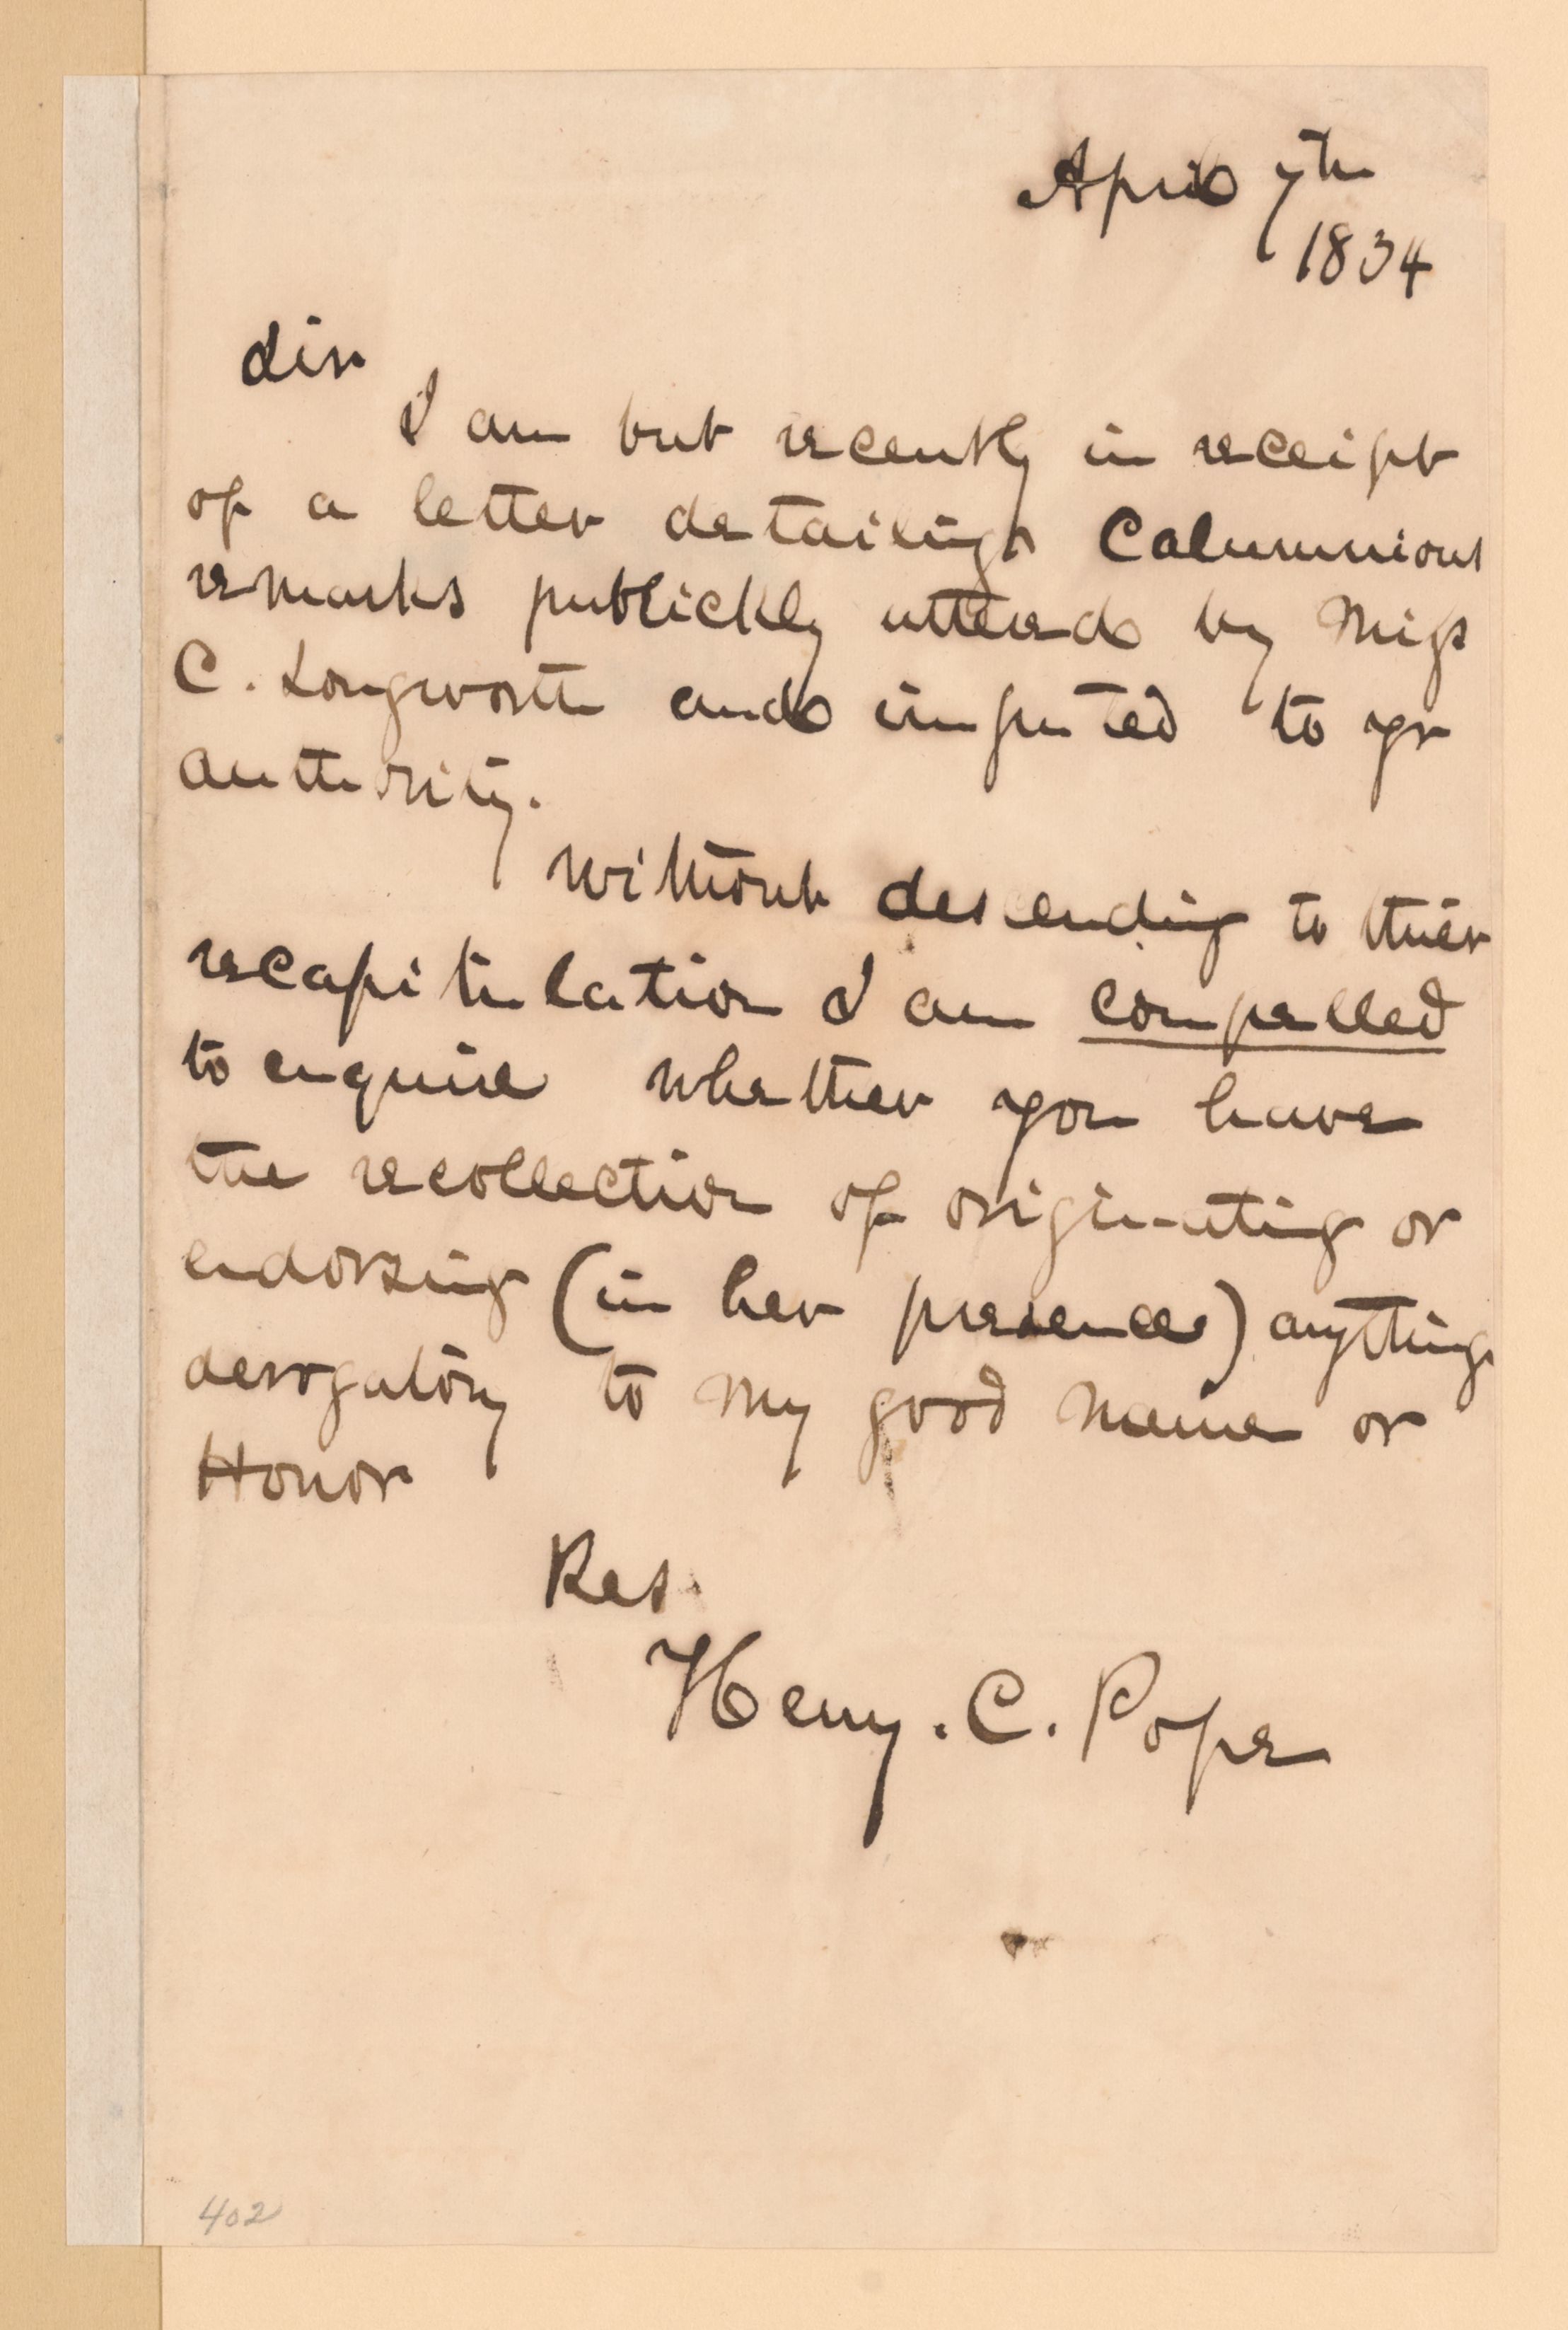 April 7th
1834
Sir
I am but recently in receipt
of a letter detailing Calumnious
remarks publickly uttered by Miss
C. Longworth and imputed to yr
authority.
Without descending to thier
recapitulation I am compelled
to enquire whether you have
the recollection of originating or
endorsing (in her presence) anything
derogatory to my good name or
Honor
Res.
Henry. C. Pope
402